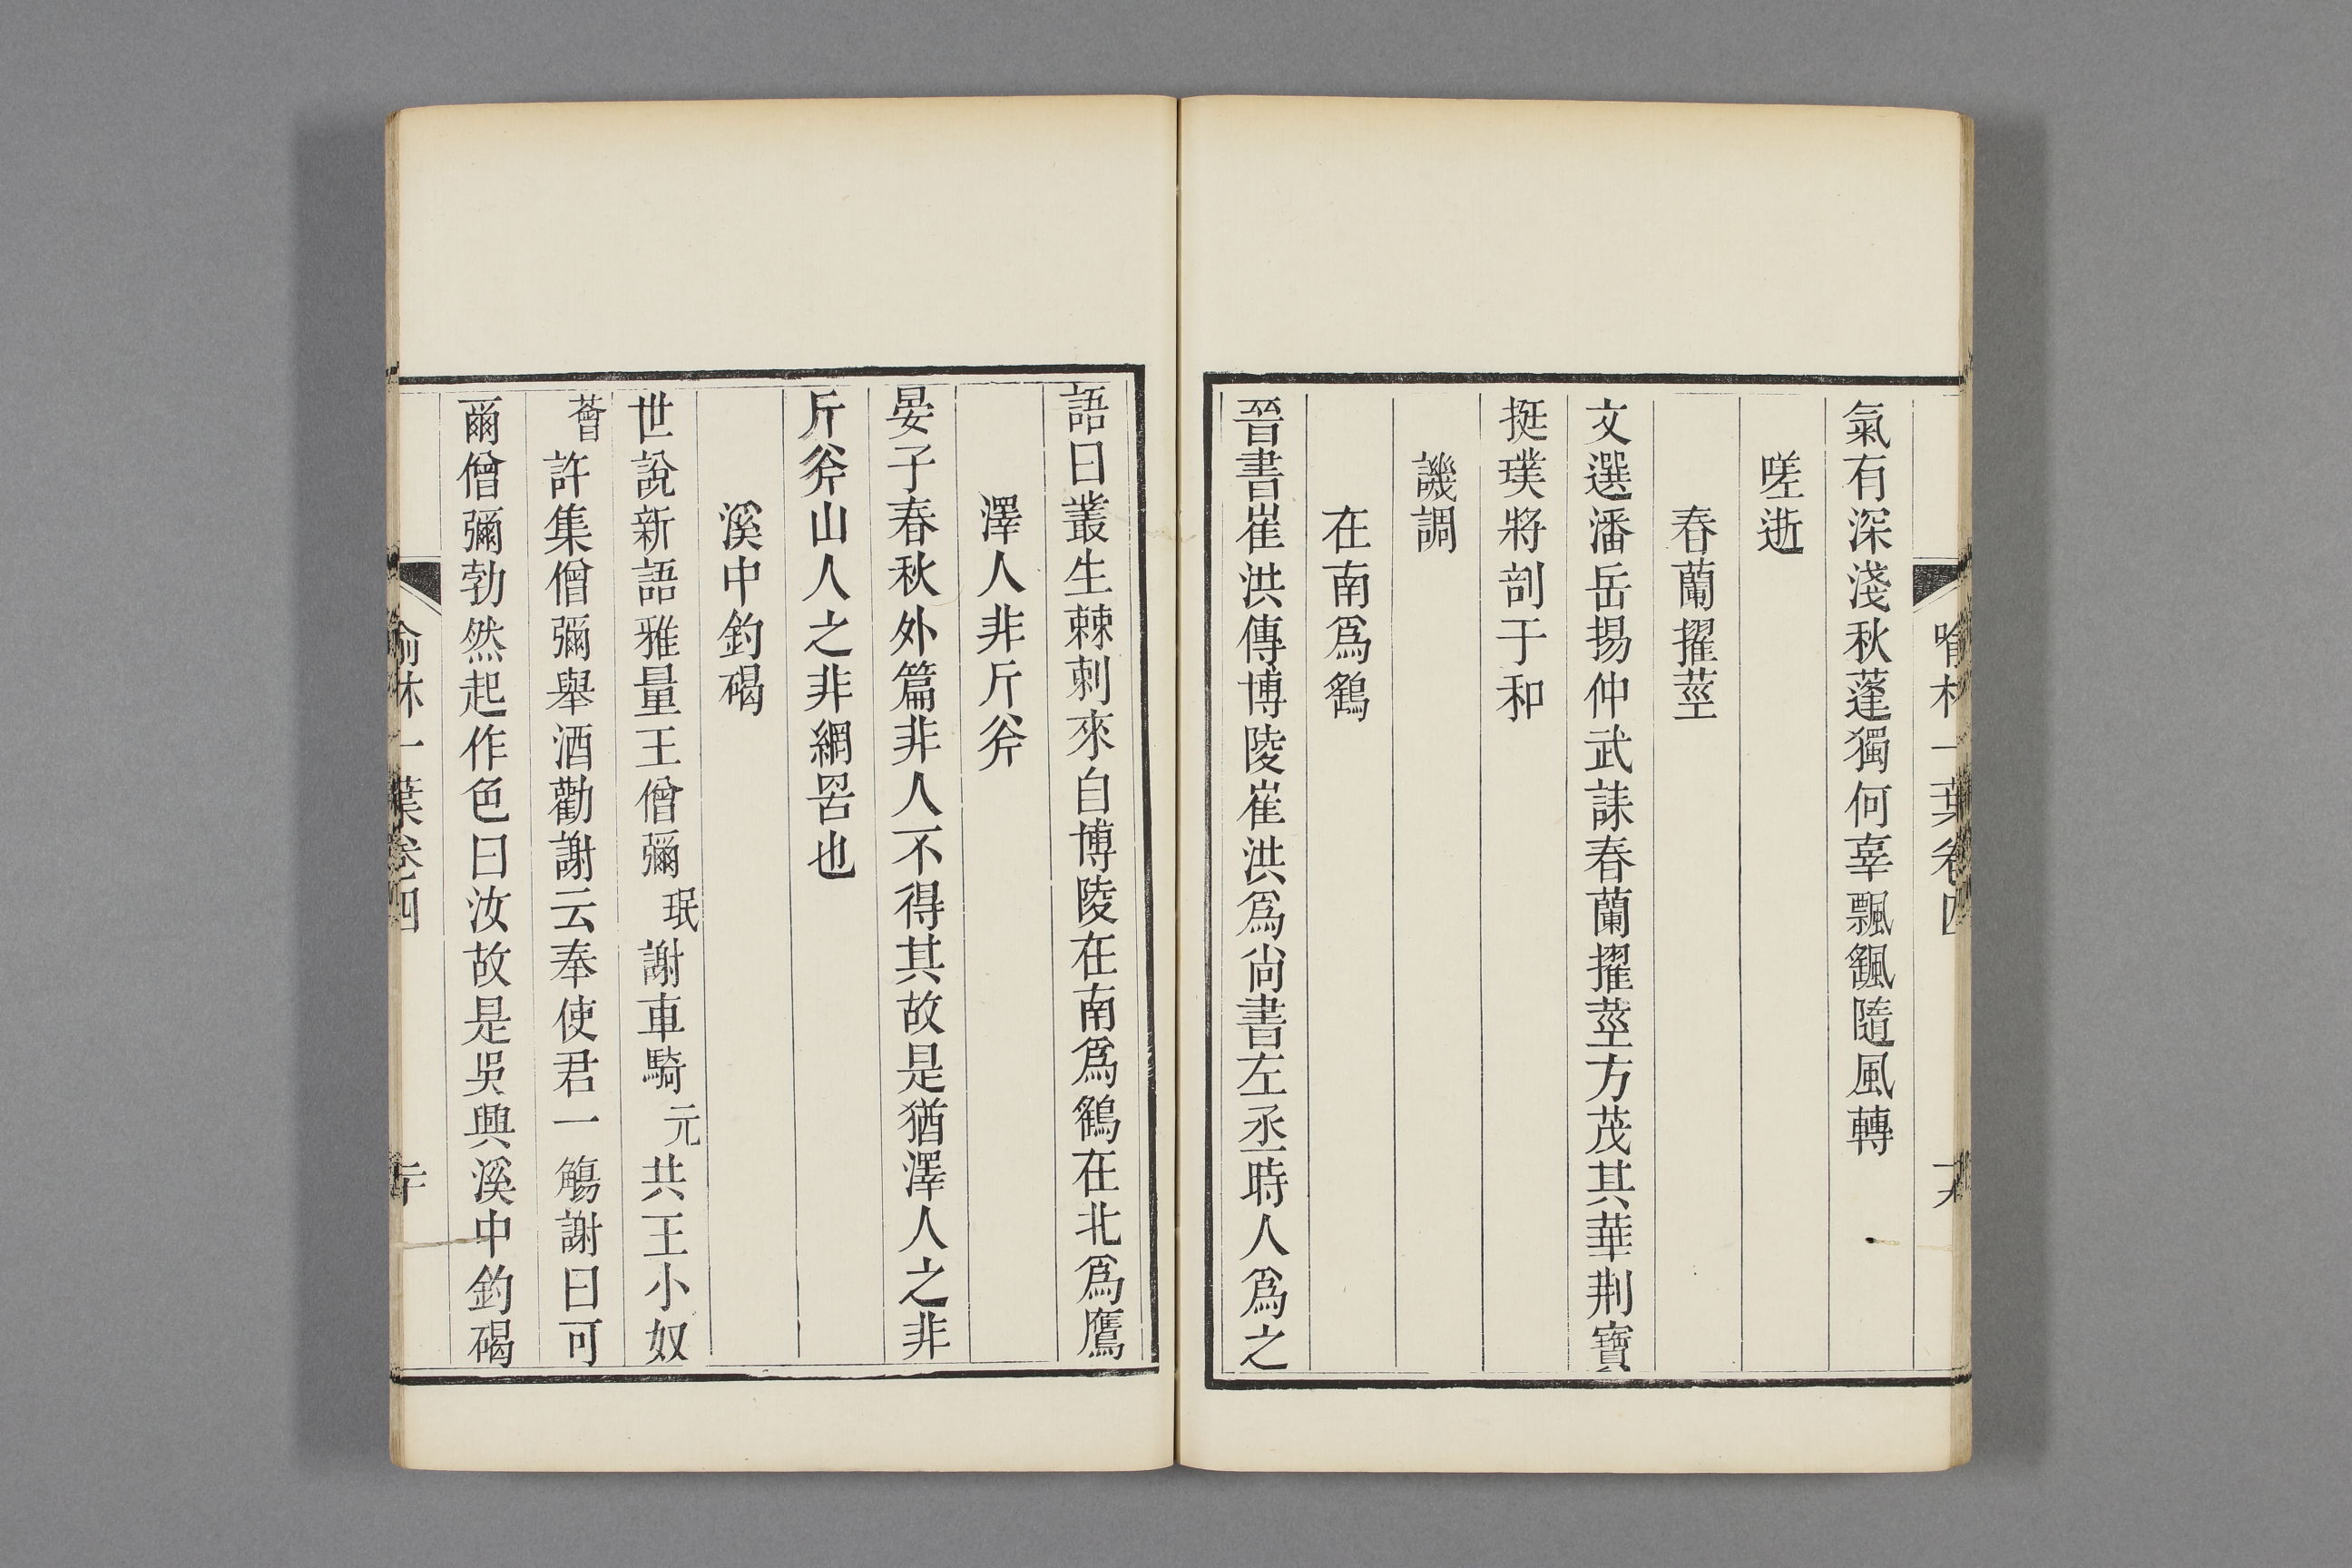 喻林一葉卷四
氣有深淺秋蓬獨何辜飄颻隨風轉
嗟逝
春蘭擢莖
文選潘岳揚仲武誄春蘭擢莖方茂其華荆寶
挺璞將剖于和
譏調
在南爲鷂
晉書崔洪傳博陵崔洪爲尚書左丞時人爲之
語曰叢生棘刺來自博陵在南爲鷂在北爲鷹
澤人非斤斧
晏子春秋外篇非人不得其故是猶澤人之非
斤斧山人之非網罟也
溪中釣碣
世說新語雅量王僧彌珉謝車騎元共王小奴
薈許集僧彌舉酒勸謝云奉使君一觴謝曰可
爾僧彌勃然起作色曰汝故是吳興溪中釣碣
喻林一葉卷四